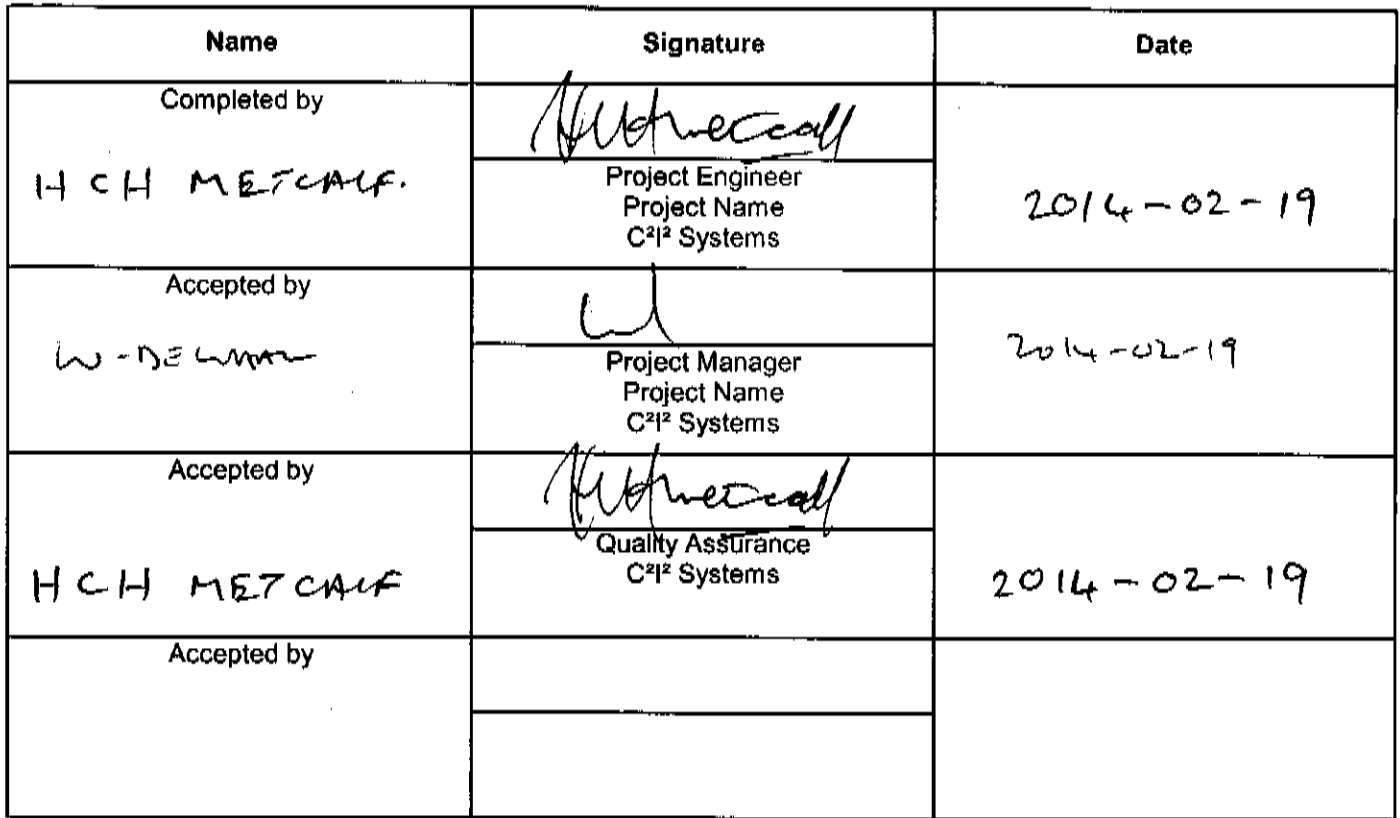 Name Signature Date
Completed by
H C H METCALF.
Project Engineer
Project Name
C²I² Systems
2014-02-19
Accepted by
Project Manager
Project Name
C²I² Systems
2014-02-19
Accepted by
H C H METCALF
Quality Assurance
C²I² Systems
2014-02-19
Accepted by